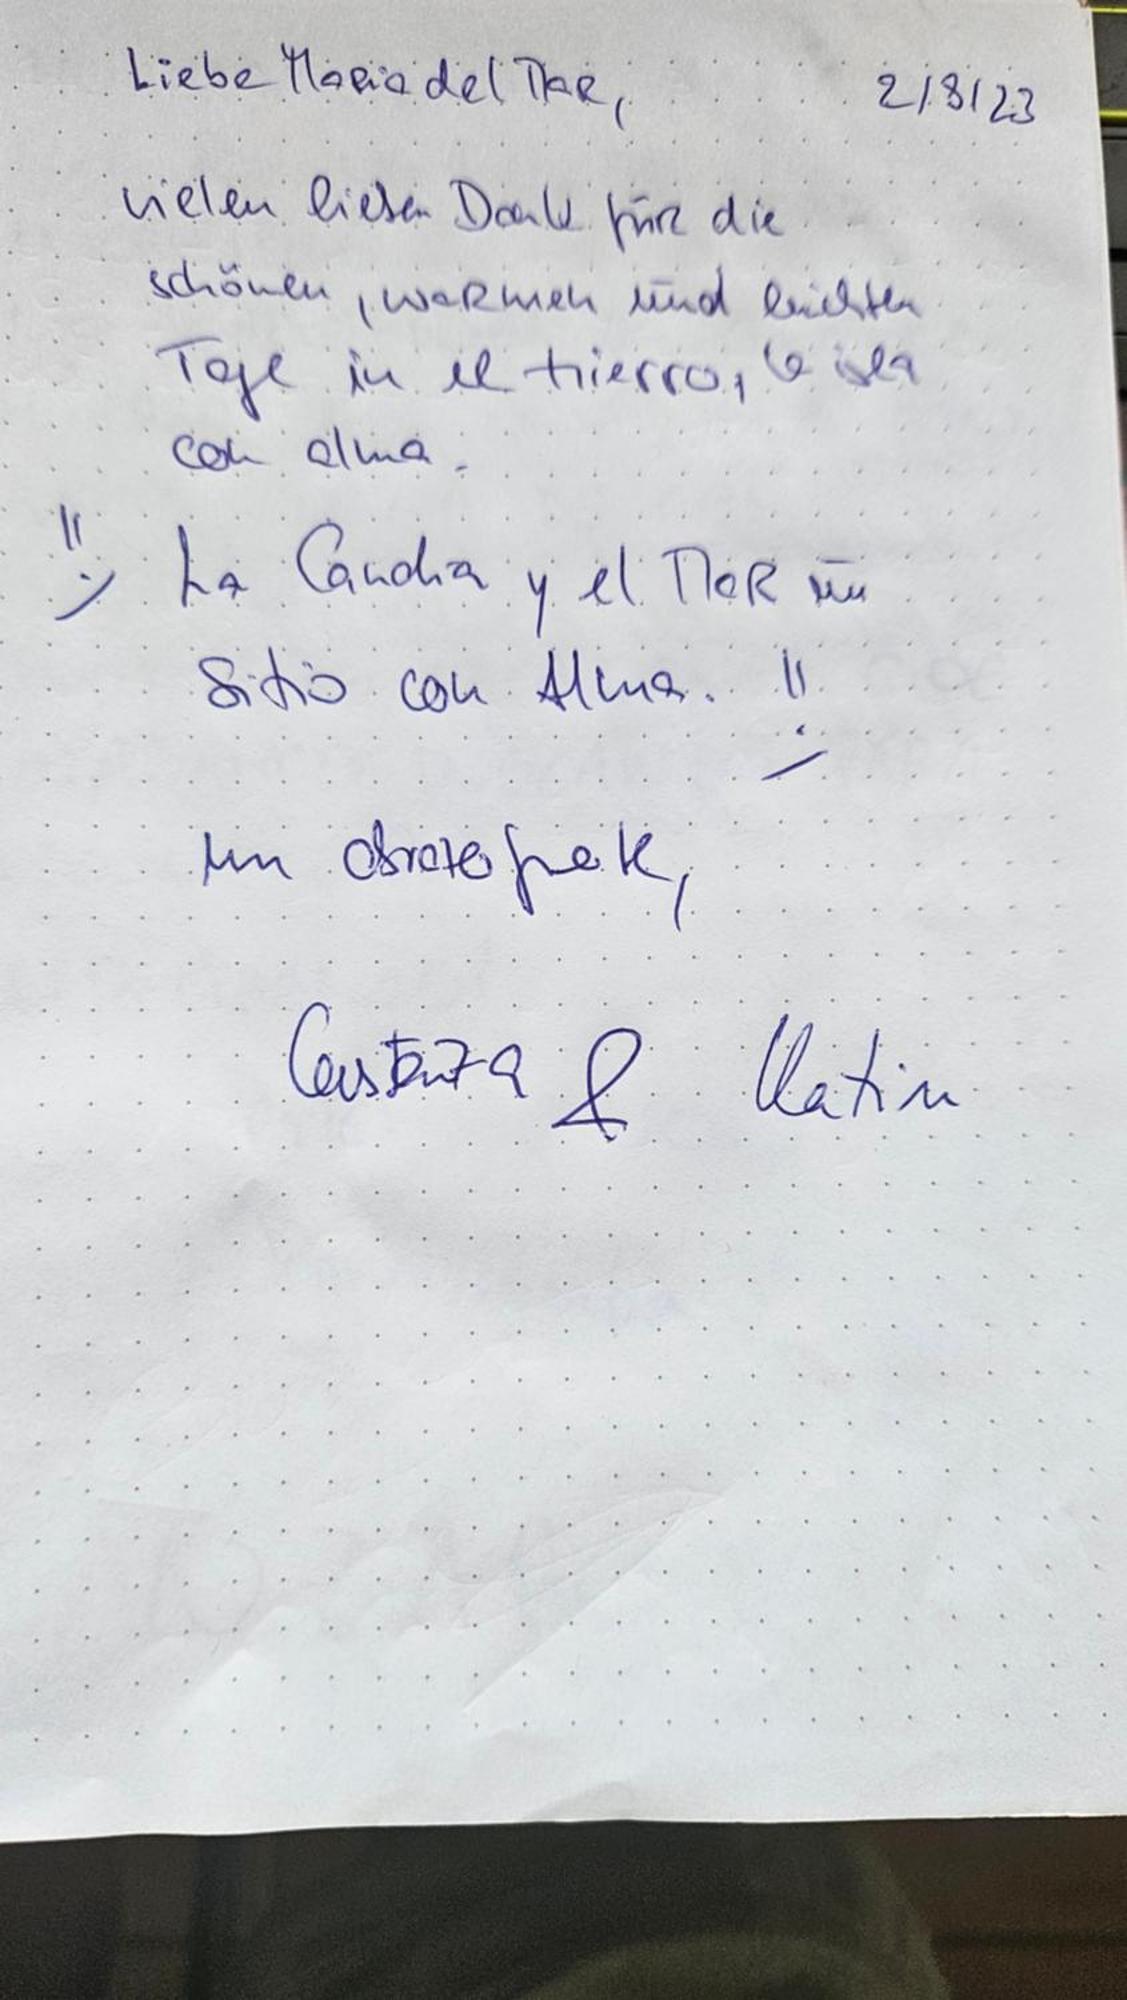 Liebe Maria del Mar, 2/8/23
vielen lieben Dank für die
schönen, warmen und leichten
Tage in el Hierro, la isla
con alma.
" :) La Candia y el Mar un
Sitio con Alma. " :)
un abrazo fuerte,
Constanza & Katrin